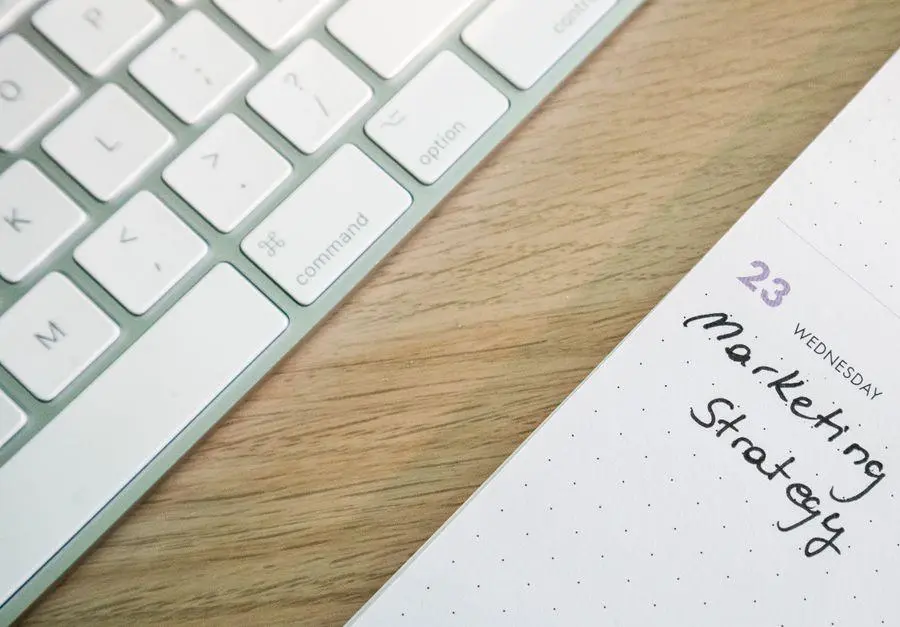 P
O
: ;
? /
control
L
> .
⌥ option
K
< ,
⌘ command
M
23 WEDNESDAY
Marketing
Strategy